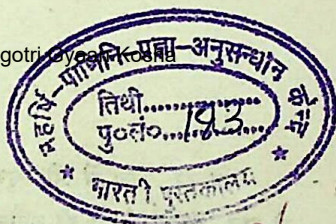 gotri Gyaan Kosha
महर्षि-पाणिनि-प्रज्ञा-अनुसन्धान केन्द्र
तिथी..............
पु०सं०...183...
* भारती पुस्तकालय *